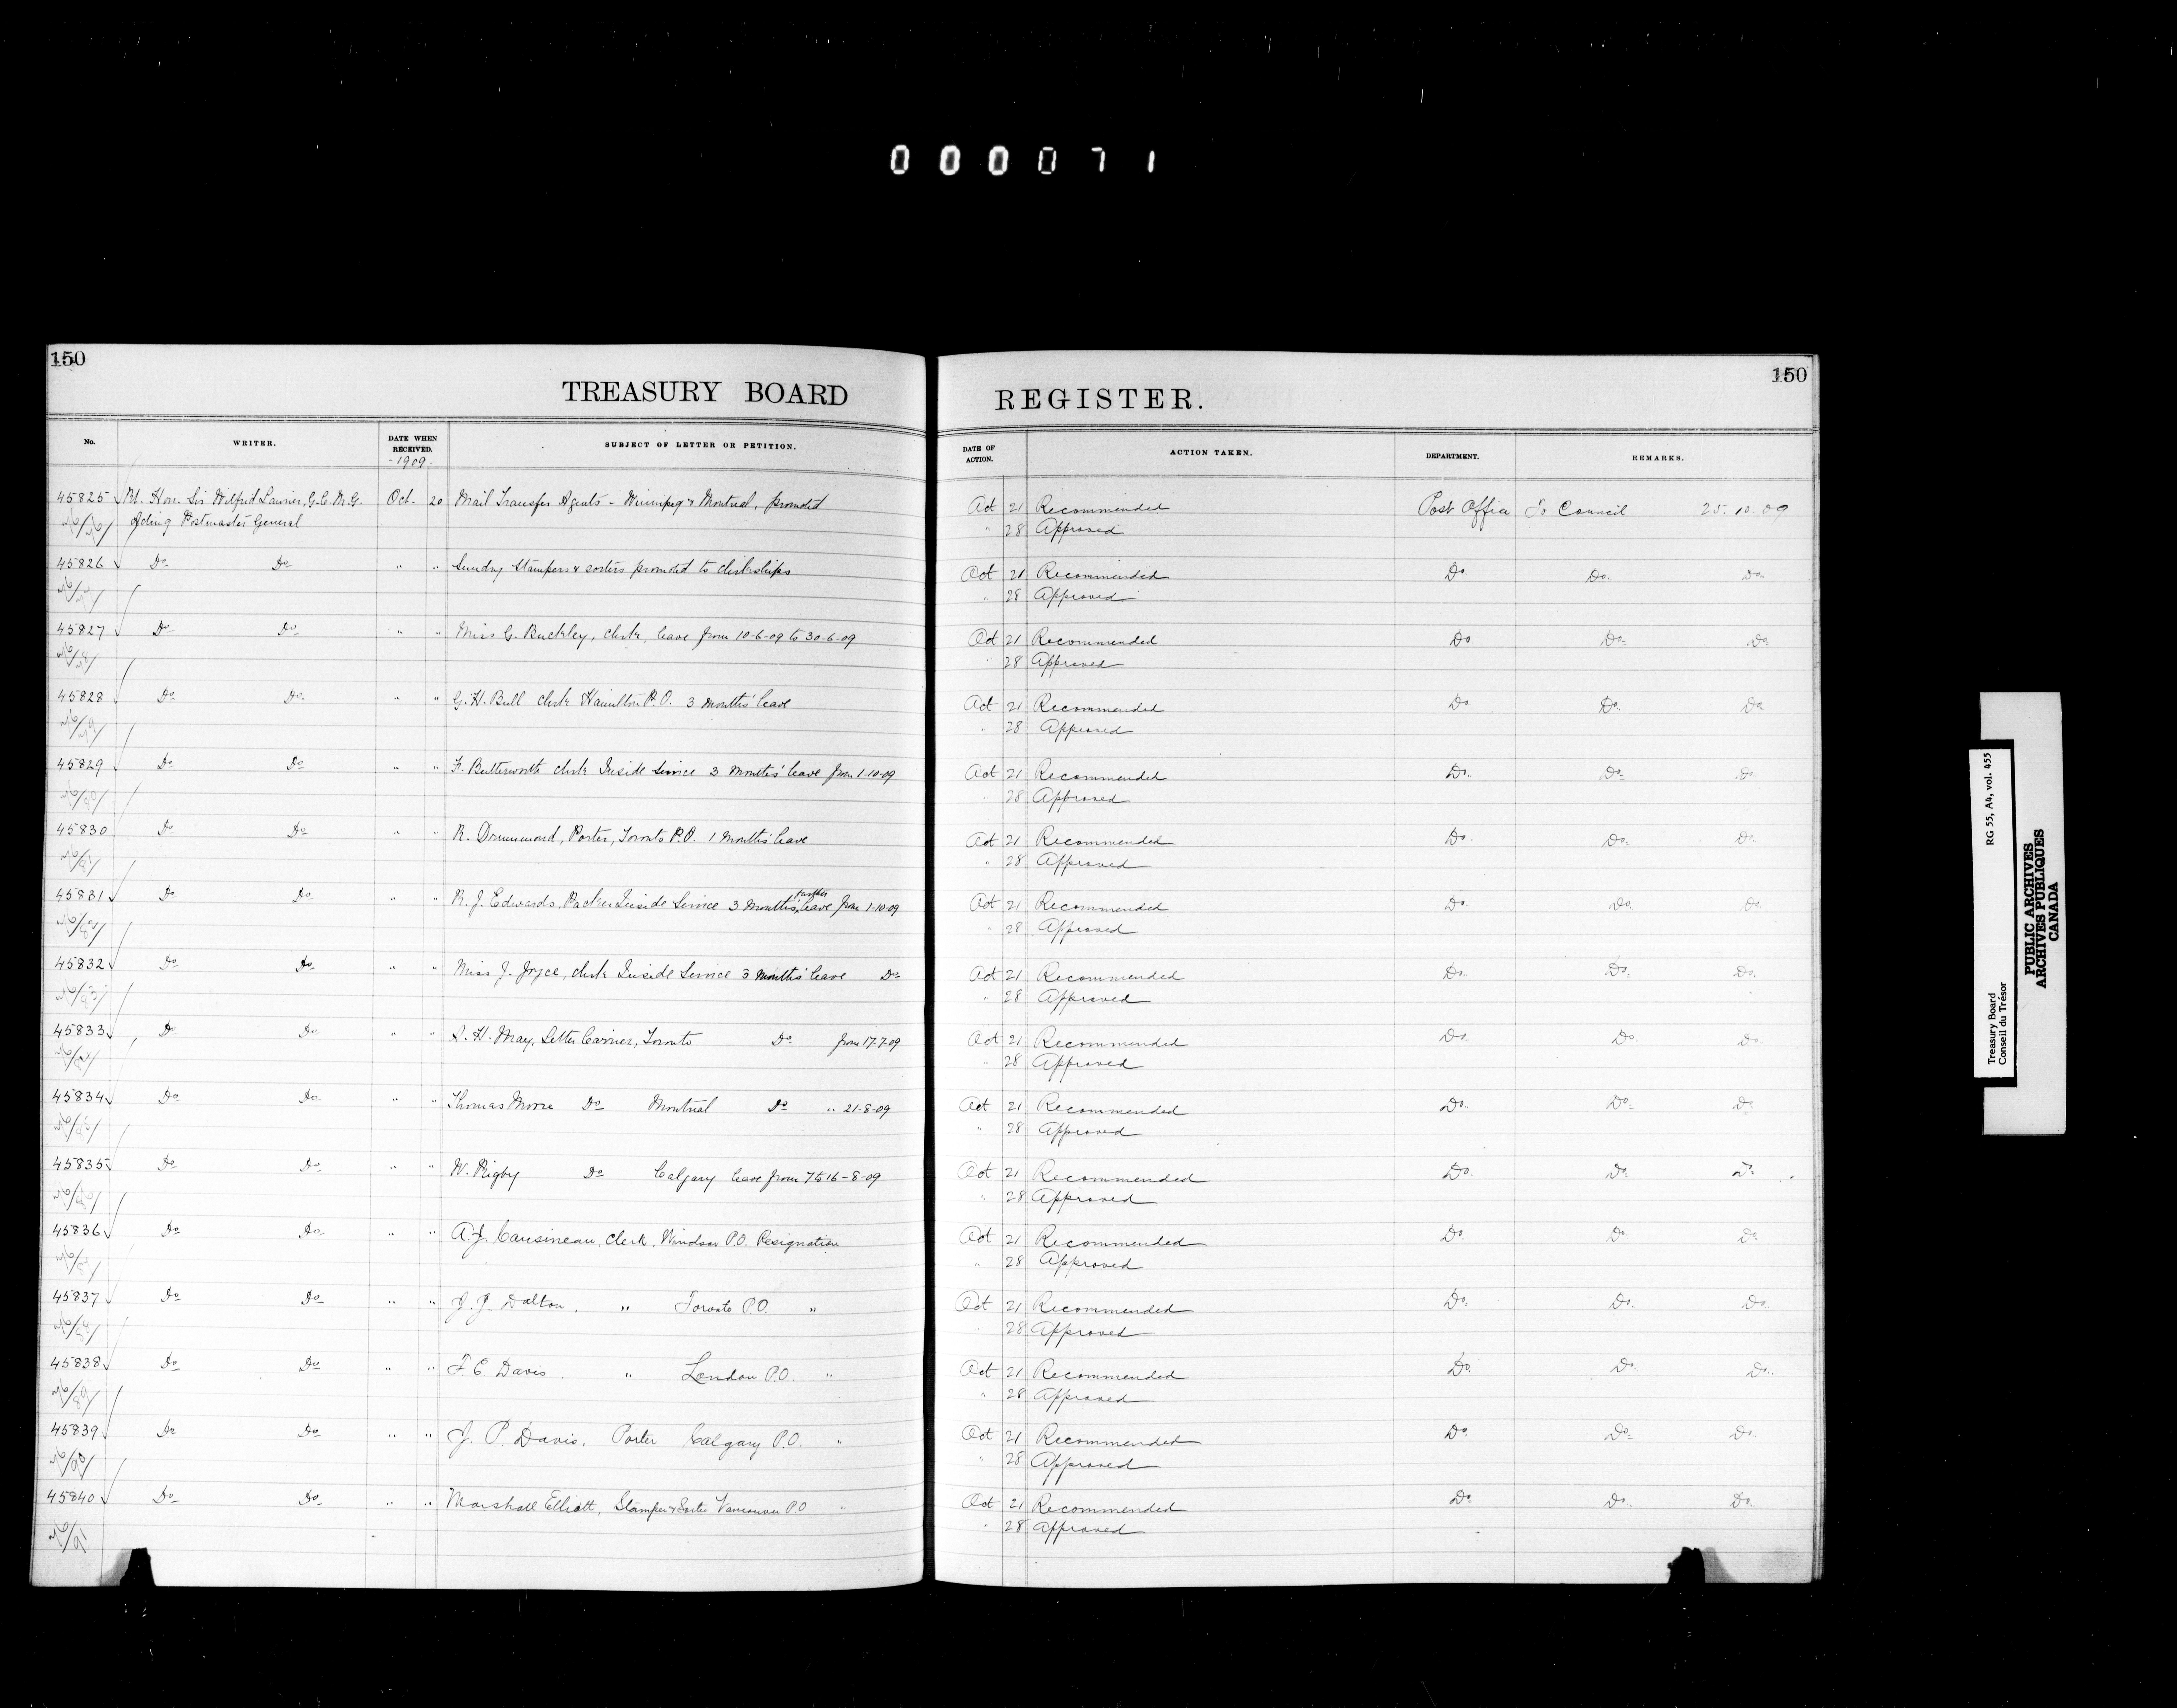 000071
150
TREASURY BOARD
No. WRITER. DATE WHEN RECEIVED. SUBJECT OF LETTER OR PETITION.
-1909-
45825 Rt. Hon. Sir Wilfrid Laurier, G.C.M.G. Oct. 20 Mail Transfer Agents - Winnipeg & Montreal, promoted
Acting Postmaster General
45826 Do Do " " Sundry Stampers & sorters promoted to clerkships
45827 Do Do " " Miss G. Buckley, clerk, leave from 10-6-09 to 30-6-09
45828 Do Do " " G. H. Bull clerk Hamilton P.O. 3 months' leave
45829 Do Do " " F. Butterworth clerk Inside Service 3 months' leave from 1-10-09
45830 Do Do " " R. Drummond, Porter, Toronto P.O. 1 month's leave
45831 Do Do " " R. J. Edwards, Packer Inside Service 3 months' further leave from 1-10-09
45832 Do Do " " Miss J. Joyce, clerk Inside Service 3 months' leave Do
45833 Do Do " " S. H. May, Letter Carrier, Toronto Do from 17-7-09
45834 Do Do " " Thomas Moore Do Montreal Do " 21-8-09
45835 Do Do " " W. Rigby Do Calgary leave from 7 to 16-8-09
45836 Do Do " " A. J. Causineau, Clerk, Windsor P.O. Resignation
45837 Do Do " " J. J. Dalton. " Toronto P.O. "
45838 Do Do " " F. E. Davis. " London P.O. "
45839 Do Do " " J. P. Davis. Porter Calgary P.O. "
45840 Do Do " " Marshall Elliott, Stamper & Sorter Vancouver P.O "
150
REGISTER.
DATE OF ACTION. ACTION TAKEN. DEPARTMENT. REMARKS.
Oct 21 Recommended Post Office To Council 25.10.09
" 28 Approved
Oct 21 Recommended Do. Do. Do.
" 28 Approved
Oct 21 Recommended Do Do. Do
" 28 Approved
Oct 21 Recommended Do Do. Do
" 28 Approved
Oct 21 Recommended Do. Do. Do.
" 28 Approved
Oct 21 Recommended Do. Do. Do.
" 28 Approved
Oct 21 Recommended Do. Do. Do.
" 28 Approved
Oct 21 Recommended Do. Do. Do.
" 28 Approved
Oct 21 Recommended Do. Do. Do.
" 28 Approved
Oct 21 Recommended Do. Do. Do.
" 28 Approved
Oct 21 Recommended Do. Do. Do.
" 28 Approved
Oct 21 Recommended Do. Do. Do.
" 28 Approved
Oct 21 Recommended Do. Do. Do.
28 Approved
Oct 21 Recommended Do. Do. Do.
" 28 Approved
Oct 21 Recommended Do. Do. Do.
" 28 Approved
Oct 21 Recommended Do. Do. Do.
" 28 Approved
Treasury Board RG 55, A4, vol. 455
Conseil du Trésor
PUBLIC ARCHIVES
ARCHIVES PUBLIQUES
CANADA